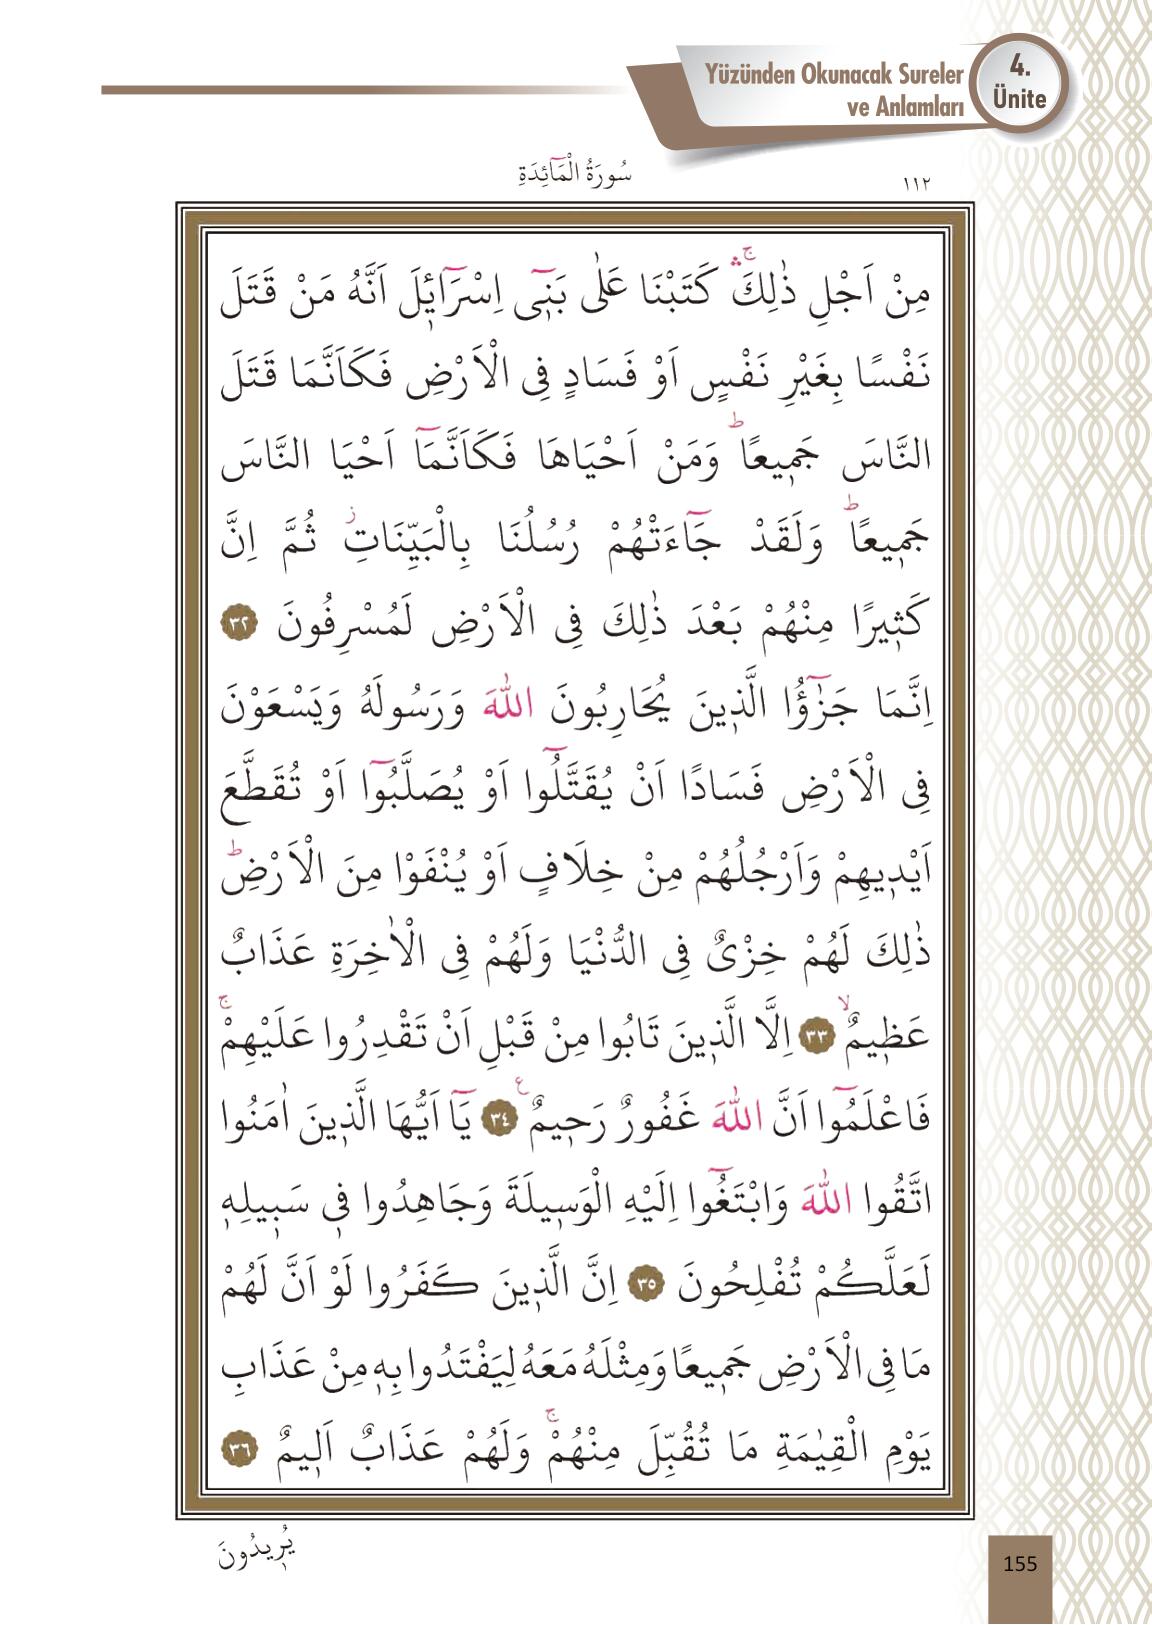 Yüzünden Okunacak Sureler
ve Anlamları
4.
Ünite
سُورَةُ الْمَٓائِدَةِ
١١٢
مِنْ اَجْلِ ذٰلِكَۛۚ كَتَبْنَا عَلٰى بَن۪ٓى اِسْرَٓائ۪لَ اَنَّهُ مَنْ قَتَلَ
نَفْسًا بِغَيْرِ نَفْسٍ اَوْ فَسَادٍ فِى الْاَرْضِ فَكَاَنَّمَا قَتَلَ
النَّاسَ جَم۪يعًاۜ وَمَنْ اَحْيَاهَا فَكَاَنَّمَٓا اَحْيَا النَّاسَ
جَم۪يعًاۜ وَلَقَدْ جَٓاءَتْهُمْ رُسُلُنَا بِالْبَيِّنَاتِۘ ثُمَّ اِنَّ
كَث۪يرًا مِنْهُمْ بَعْدَ ذٰلِكَ فِى الْاَرْضِ لَمُسْرِفُونَ ٣٢
اِنَّمَا جَزٰٓؤُا الَّذ۪ينَ يُحَارِبُونَ اللّٰهَ وَرَسُولَهُ وَيَسْعَوْنَ
فِى الْاَرْضِ فَسَادًا اَنْ يُقَتَّلُٓوا اَوْ يُصَلَّبُٓوا اَوْ تُقَطَّعَ
اَيْد۪يهِمْ وَاَرْجُلُهُمْ مِنْ خِلَافٍ اَوْ يُنْفَوْا مِنَ الْاَرْضِۜ
ذٰلِكَ لَهُمْ خِزْىٌ فِى الدُّنْيَا وَلَهُمْ فِى الْاٰخِرَةِ عَذَابٌ
عَظ۪يمٌۙ ٣٣ اِلَّا الَّذ۪ينَ تَابُوا مِنْ قَبْلِ اَنْ تَقْدِرُوا عَلَيْهِمْۚ
فَاعْلَمُٓوا اَنَّ اللّٰهَ غَفُورٌ رَح۪يمٌ ع ٣٤ يَٓا اَيُّهَا الَّذ۪ينَ اٰمَنُوا
اتَّقُوا اللّٰهَ وَابْتَغُٓوا اِلَيْهِ الْوَس۪يلَةَ وَجَاهِدُوا ف۪ى سَب۪يلِه۪
لَعَلَّكُمْ تُفْلِحُونَ ٣٥ اِنَّ الَّذ۪ينَ كَفَرُوا لَوْ اَنَّ لَهُمْ
مَا فِى الْاَرْضِ جَم۪يعًا وَمِثْلَهُ مَعَهُ لِيَفْتَدُوا بِه۪ مِنْ عَذَابِ
يَوْمِ الْقِيٰمَةِ مَا تُقُبِّلَ مِنْهُمْۚ وَلَهُمْ عَذَابٌ اَل۪يمٌ ٣٦
يُر۪يدُونَ
155